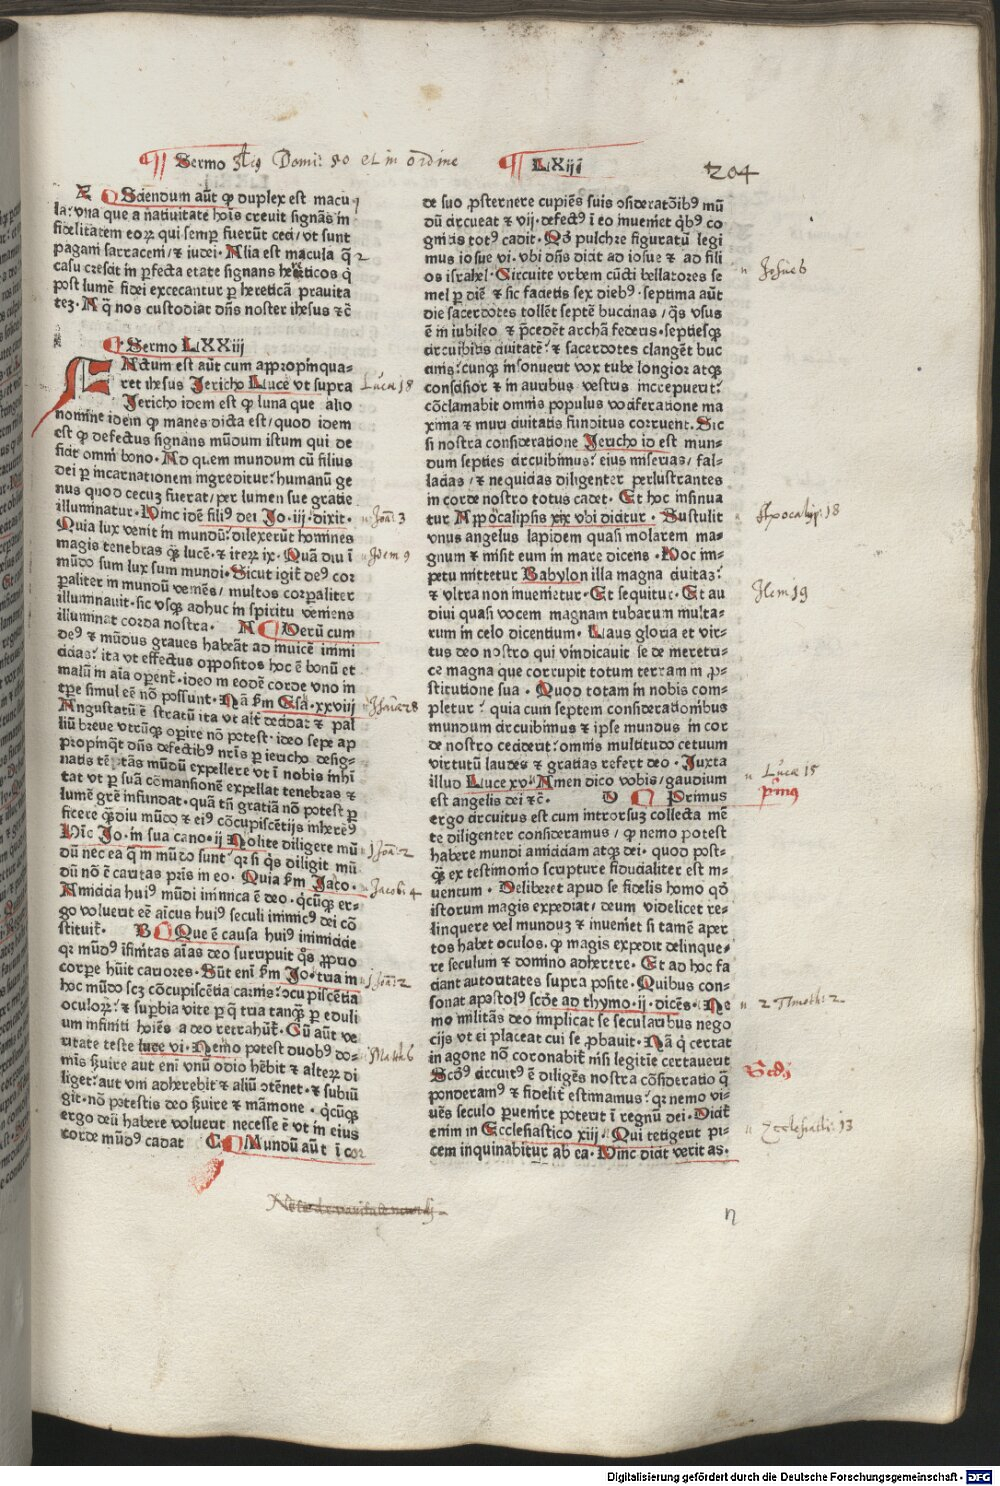 Sermo Domi: 80 et in ordine LXiij 204
Sciendum aūt ꝙ duplex est macu
la: vna que a natiuitate hoīs creuit signās in
fidelitatem eoꝝ qui semꝑ fuerūt ceci/vt sunt
pagani sarraceni/⁊ iudei. Alia est macula q̄
casu crescit in ꝑfecta etate signans hereticos q̄
post lumē fidei excecantur ꝑ hereticā prauita
tez. A q̄ nos custodiat dn̄s noster ihesus ⁊c̄
Sermo LXXiij
FActum est aūt cum appropinqua-
ret ihesus Jericho Luce vt supra
Jericho idem est ꝙ luna que alio
nomine idem ꝙ manes dicta est/quod idem
est ꝙ defectus signans mūdum istum qui de
ficit omni bono. Ad quem mundum cū filius
dei ꝑ incarnationem ingreditur: humanū ge
nus quod cecuz fuerat/per lumen sue gratie
illuminatur. Hinc idē filiꝰ dei Jo. iij. dixit.
Quia lux venit in mundū: dilexerūt homines
magis tenebras q̄ꝫ lucē. ⁊ iteꝝ ix. Quā diu ī
mūdo sum lux sum mundi. Sicut igit̄ deꝰ cor
ꝑaliter in mundū veniēs/multos corꝑaliter
illuminauit. sic vsqꝫ adhuc in spiritu veniens
illuminat corda nostra. A Verū cum
deꝰ ⁊ mūdus graues habeāt ad inuicē inimi
cicias: ita vt effectus oppositos hoc ē bonū et
malū in aīa oꝑent̄. ideo in eodē corde vno in
tꝑe simul eē nō possunt. Nā ẜm Esa. xxviij
Angustatū ē stratū ita vt alt̄ decidat ⁊ pal
liū breue vtrūqꝫ oꝑire nō potest. ideo sepe ap
propinq̄t dn̄s defectibꝰ nr̄is ꝑ iericho desig-
natis tēptās mūdū expellere vt ī nobis inhī
tat vt ꝑ suā cōmansionē expellat tenebras ⁊
lumē grē infundat. quā tn̄ gratiā nō potest ꝑ
ficere q̄ꝫdiu mūdo ⁊ eiꝰ cōcupiscētijs inherēꝰ
Hīc Jo. in sua cano. ij Nolite diligere mū
dū nec ea q̄ in mūdo sunt. qꝛ si q̄s diligit mū
dū nō ē caritas pr̄is in eo. Quia ẜm Jaco.
Amicicia huiꝰ mūdi inimica ē deo. q̄cūqꝫ er-
go voluerit eē aīcus huiꝰ seculi inimicꝰ dei cō
stituit̄. B Que ē causa huiꝰ inimicicie
qꝛ mūdꝰ īfinitas aīas deo surripuit q̄s ꝓprio
corpore hūit cariores. Sūt enī ẜm Jo. tria in
hoc mūdo scꝫ cōcupiscētia carnis: ↄcupiscētia
oculoꝝ: ⁊ suꝑbia vite ꝑ q̄ tria tanqꝫ ꝑ eduli
um infiniti hoīes a deo retrahūt̄. Cū aūt ve
ritate teste luce vi. Nemo potest duobꝰ do-
mīs ẜuire aut enī vnū odio hēbit ⁊ alteꝝ di
liget: aut vni adherebit ⁊ aliū ↄtēnet. ⁊ subiū
git. nō potestis deo ẜuire ⁊ māmone. q̄cūqꝫ
ergo deū habere voluerit necesse ē vt in eius
corde mūdꝰ cadat C Mundū aūt ī cor
Luca 18
Joā: 3
Idem 9
Isaiæ 28
1 Joā: 2
Jacobi 4
1 Joā: 2
Matth 6
de suo ꝓsternere cupiēs suis ↄsideratōībꝰ mū
dū circueat ⁊ vij. defectꝰ ī eo inueniet q̄bꝰ co
gnitis totꝰ cadit. Qd̄ pulchre figuratū legi
mus iosue vi. vbi dn̄s dicit ad iosue ⁊ ad fili
os israhel. Circuite vrbem cūcti bellatores se
mel ꝑ diē ⁊ sic facietis sex diebꝰ. septima aūt
die sacerdotes tollēt septē buccinas/q̄s vsus
ē in iubileo ⁊ p̄cedēt archā federis. septiesqꝫ
circuibitis ciuitatē: ⁊ sacerdotes clangēt buc
cinis: cunqꝫ insonuerit vox tube longior atqꝫ
conscisior ⁊ in auribus vestris increpuerit:
cōclamabit omnis populus vociferatione ma
xima ⁊ muri ciuitatis funditus corruent. Sic
si nostra consideratione Jericho id est mun-
dum septies circuibimus: eius miserias/fal-
lacias/⁊ nequicias diligenter perlustrantes
in corde nostro totus cadet. Et hoc insinua
tur Appocalipsis xix vbi dicitur. Sustulit
vnus angelus lapidem quasi molarem ma-
gnum ⁊ misit eum in mare dicens. Hoc im-
petu mittetur Babylon illa magna ciuitaz:
⁊ vltra non inuenietur. Et sequitur. Et au
diui quasi vocem magnam tubarum multa-
rum in celo dicentium. Laus gloria et vir-
tus deo nostro qui vindicauit se de meretri-
ce magna que corrupit totum terram in ꝓ-
stitutione sua. Quod totam in nobis com-
pletur: quia cum septem considerationibus
mundum circuibimus ⁊ ipse mundus in cor
de nostro ceciderit: omnis multitudo cetuum
virtutū laudes ⁊ gratias refert deo. Juxta
illud Luce xv. Amen dico vobis/gaudium
est angelis dei ⁊c̄. D Primus
ergo circuitus est cum introrsuꝫ collecta mē
te diligenter consideramus/ꝙ nemo potest
habere mundi amiciciam atqꝫ dei. quod post-
q̄ꝫ ex testimonio scripture fiducialiter est in-
uentum. Deliberet apud se fidelis homo qd̄
istorum magis expediat/deum videlicet re-
linquere vel munduꝫ ⁊ inueniet si tamē aper
tos habet oculos. ꝙ magis expedit delinque-
re seculum ⁊ domino adherere. Et ad hoc fa
ciant autoritates supra posite. Quibus con-
sonat apostolꝰ scd̄e ad thymo. ij. dicēs. Ne
mo militās deo implicat se secularibus nego
cijs vt ei placeat cui se ꝓbauit. Nā q̄ certat
in agone nō coronabit̄ nisi legitīe certauerit
Scd̄ꝰ circuitꝰ ē diligēs nostra cōsideratio q̄
ponderamꝰ ⁊ fidelit̄ estimamus: qꝛ nemo vi-
uēs seculo ꝑuenire poterit ī regnū dei. Dicit̄
enim in Ecclesiastico xiij. Qui tetigerit pi-
cem inquinabitur ab ea. Hinc dicit verit as.
Josue 6
Apocalip: 18
Item 19
Luca 15
prīmꝰ
2 Timoth: 2
Scdꝰ
Ecclesiasti: 13
n
Digitalisierung gefördert durch die Deutsche Forschungsgemeinschaft - DFG